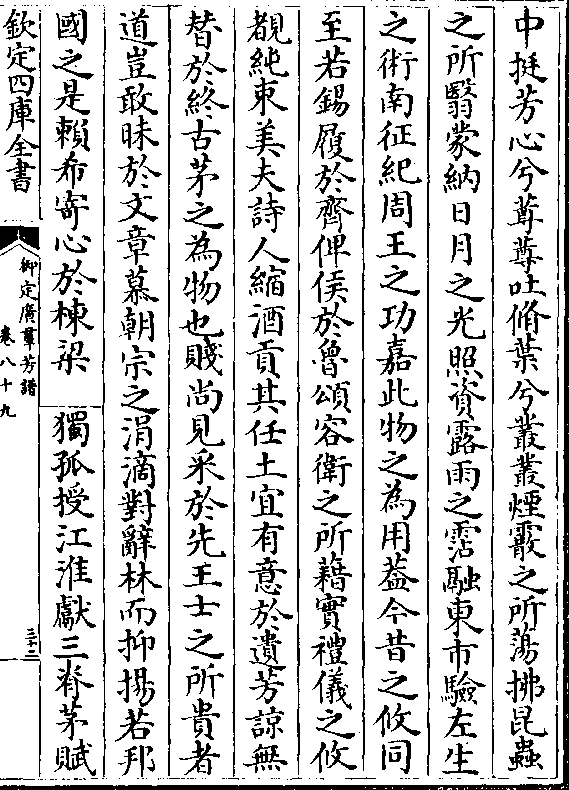 中挺芳心兮蓴蓴吐脩葉兮叢叢煙霰之所蕩拂昆蟲
之所翳蒙納日月之光照資露雨之霑融東市驗左生
之術南征紀周王之功嘉此物之為用葢今昔之攸同
至若錫履於齊俾侯於魯頌容衛之所藉實禮儀之攸
覩純束美夫詩人縮酒貢其任土宜有意於遺芳諒無
替於終古茅之為物也賤尚見采於先王士之所貴者
道豈敢昧於文章慕朝宗之涓滴對辭林而抑揚若邦
國之是賴希寄心於棟梁 獨孤授江淮獻三脊茅賦
欽定四庫全書
御定廣羣芳譜
卷八十九
三十二